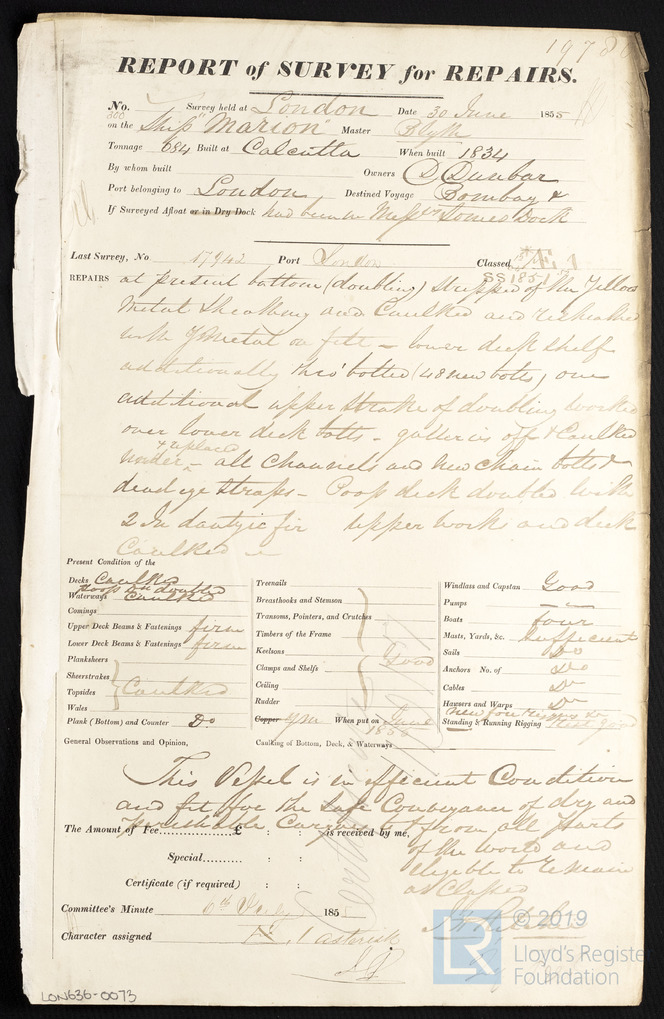 REPORT of SURVEY for REPAIRS.
No. Survey held at London Date 30 June 1855
on the Ship "Marion" Master Blyth
Tonnage 684 Built at Calcutta When built 1834
By whom built Owners D Dunbar
Port belonging to London Destined Voyage Bombay &
If Surveyed Afloat or in Dry Dock had been in Messrs Somes Dock
Last Survey, No 17942 Port London Classed
SS 1851
REPAIRS at present bottom (doubling) stripped of the Yellow
Metal Sheathing and Caulked and resheathed
with YMetal on felt – lower deck shelf
additionally thro' bolted (48 new bolts) one
additional upper strake of doubling worked
over lower deck bolts – galleries off & Caulked
& replaced
under – all Channels and new chain bolts &
dead eye straps – Poop deck doubled with
2 In dantzic fir upper works and deck
Caulked
Present Condition of the
Decks Caulked
Poop deck doubled
Waterways Caulked
Comings
Upper Deck Beams & Fastenings firm
Lower Deck Beams & Fastenings firm
Planksheers
Sheerstrakes
Topsides Caulked
Wales
Plank (Bottom) and Counter Do
Treenails
Breasthooks and Stemson
Transoms, Pointers, and Crutches
Timbers of the Frame
Keelsons Good
Clamps and Shelfs
Ceiling
Rudder
Copper YM When put on June 1855
Caulking of Bottom, Deck, & Waterways
Windlass and Capstan Good
Pumps
Boats four
Masts, Yards, &c. Sufficient
Sails Do
Anchors No. of Do
Cables Do
Hawsers and Warps Do
Standing & Running Rigging
General Observations and Opinion,
This Vessel is in efficient Condition
and fit for the Safe Conveyance of dry and
perishable Cargoes to & from all parts
of the world and
eligible to remain
as Classed
The Amount of Fee £ : : is received by me,
Special : :
Certificate (if required) : :
Committee's Minute 6th July 1855
Character assigned 1 asterisk
LON636-0073
LR
© 2019
Lloyd's Register
Foundation